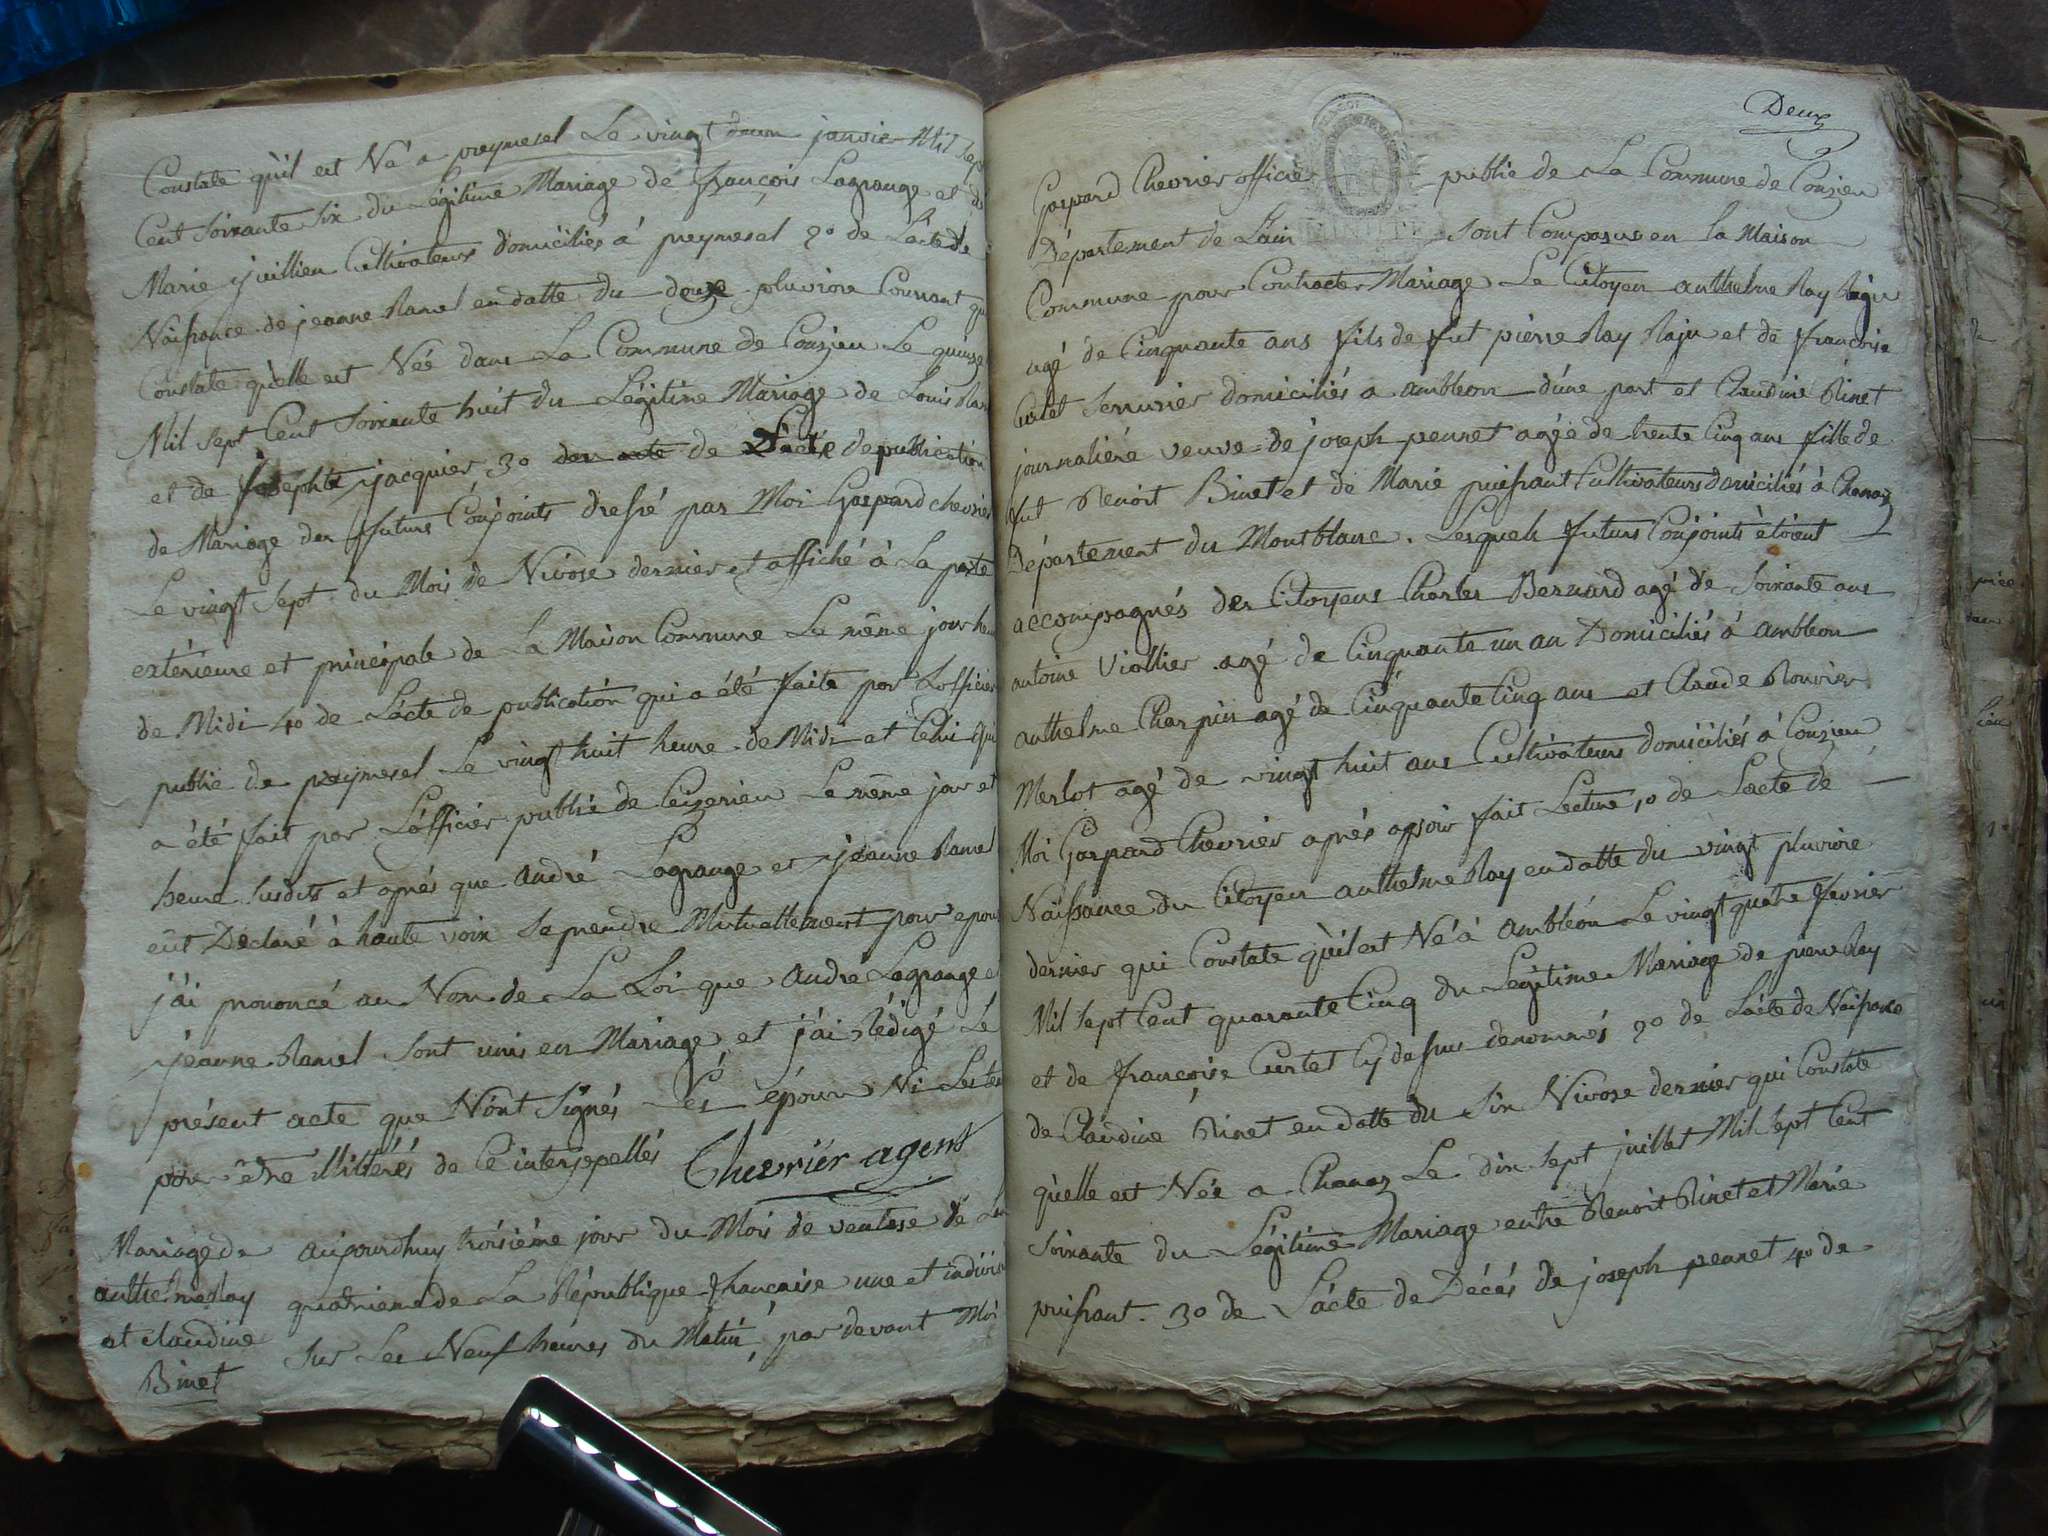 Constate qu'il est Né a preymesel Le vingt deux janvier Mil sept
Cent soixante six du Légitime Mariage de françois Lagrange et de
Marie juillien Cultivateurs domiciliés à preymesel 2º de Lacte de
Naissance de jeanne Ramel en datte du douze pluviose Courrant qui
Constate qu'elle est Née dans La Commune de Conzieu Le quinze
Mil sept Cent soixante huit du Légitime Mariage de Louis Ram
et de josephte jacquier 3º de L'acte de publication
de Mariage des futurs Conjoints dressé par Moi Gaspard chevrier
Le vingt sept du Mois de Nivose dernier et affiché à La porte
extérieure et principale de La Maison Commune Le même jour heure
de Midi 4º de L'acte de publication qui a été faite par Lofficier
public de preymesel Le vingt huit heure de Midi et Celui qui
a été fait par L'officier public de Ceyzerieu Le même jour et
heure susdits et aprés que andré Lagrange et jeanne Ramel
eut Déclaré à haute voix se prendre Mutuellement pour epoux
j'ai prononcé au Nom de La Loi que andré Lagrange et
jeanne Ramel sont unis en Mariage et j'ai Rédigé Le
présent acte que N'ont signés Les époux Ni Les tem
pour être illittérés de Ce interpellés Chevrier agent
Mariage de
anthelme Ray
et claudine
Binet
aujourdhuy troisiéme jour du Mois de ventose de Lan
quatrieme de La République francaise une et indivis
sur Les Neuf heures du Matin, par devant Moi
Deux
Gaspard Chevrier officier public de La Commune de Conzieu
Département de Lain sont Comparus en la Maison
Commune pour Contracter Mariage Le Citoyen anthelme Ray Raju
agé de Cinquante ans fils de fut pierre Ray Raju et de francoise
Curtet serrurier domiciliés a ambleon d'une part et Claudine Binet
journaliére veuve de joseph peunet agée de trente Cinq ans fille de
fut Benoit Binet et de Marie puissant Cultivateurs domiciliés à Chanaz
Département du Montblanc. Lesquels futurs Conjoints étoient
accompagnés des Citoyens Charles Bernard agé de soixante ans
antoine Viollier agé de Cinquante un an Domiciliés à ambleon
anthelme Charpin agé de Cinquante Cinq ans et Claude Bouvier
Merlot agé de vingt huit ans Cultivateurs domiciliés à Conzieu
Moi Gaspard Chevrier aprés apvoir fait Lecture, 1º de L'acte de
Naissance du Citoyen anthelme Ray en datte du vingt pluviose
dernier qui Constate qu'il est Né à ambléon Le vingt quatre fevrier
Mil sept Cent quarante Cinq du Légitime Mariage de pierre Ray
et de françoise Curtet Cy dessus denommés 2º de L'acte de Naissance
de Claudine Binet en datte du six Nivose dernier qui Constate
qu'elle est Née a Chanaz Le dix sept juillet Mil sept Cent
soixante du Légitime Mariage entre Benoit Binet et Marie
puissant. 3º de L'acte de Décés de joseph peunet 4º de